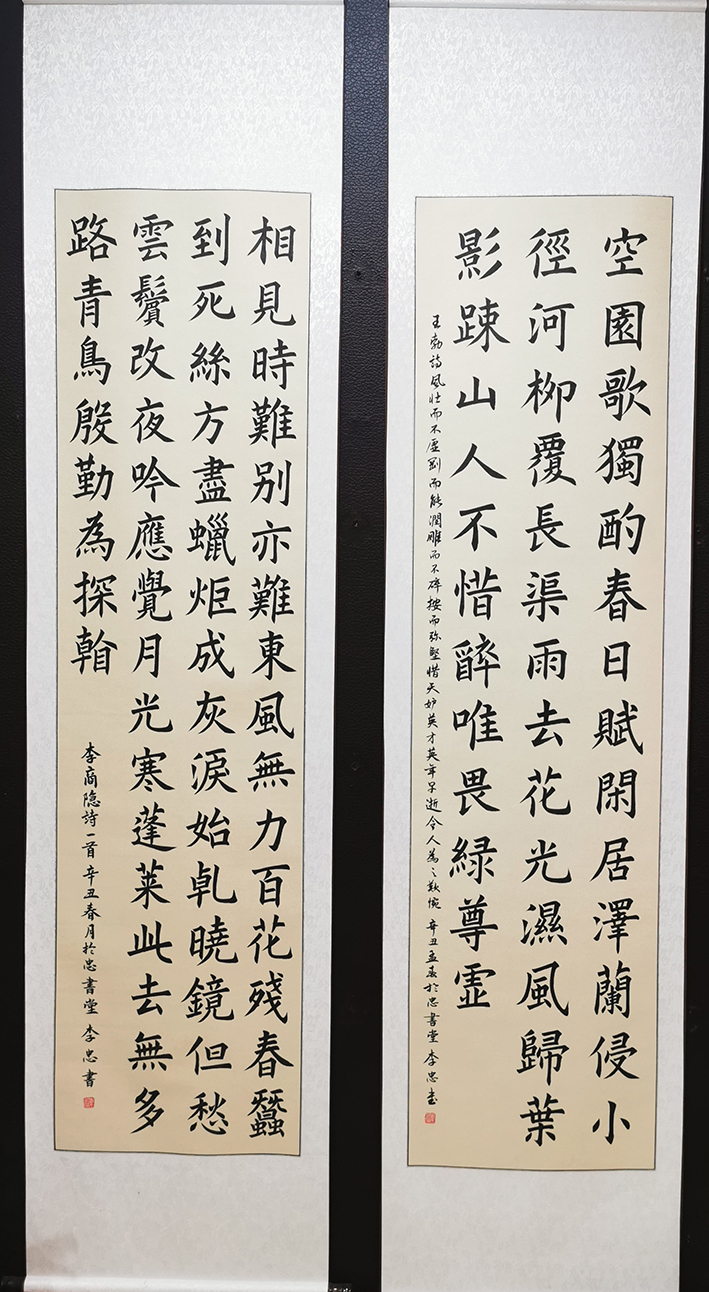 空園歌獨酌春日賦閑居澤蘭侵小
徑河柳覆長渠雨去花光濕風歸葉
影踈山人不惜醉唯畏緑尊虛
王勃詩風壯而不虛剛而能潤雕而不碎按而弥堅惜天妒英才英年早逝令人為之歎惋 辛丑孟春於忠書堂 李忠書
相見時難别亦難東風無力百花殘春蠶
到死絲方盡蠟炬成灰淚始乹曉鏡但愁
雲鬢改夜吟應覺月光寒蓬萊此去無多
路青鳥殷勤為探看
李商隐詩一首辛丑春月於忠書堂 李忠書